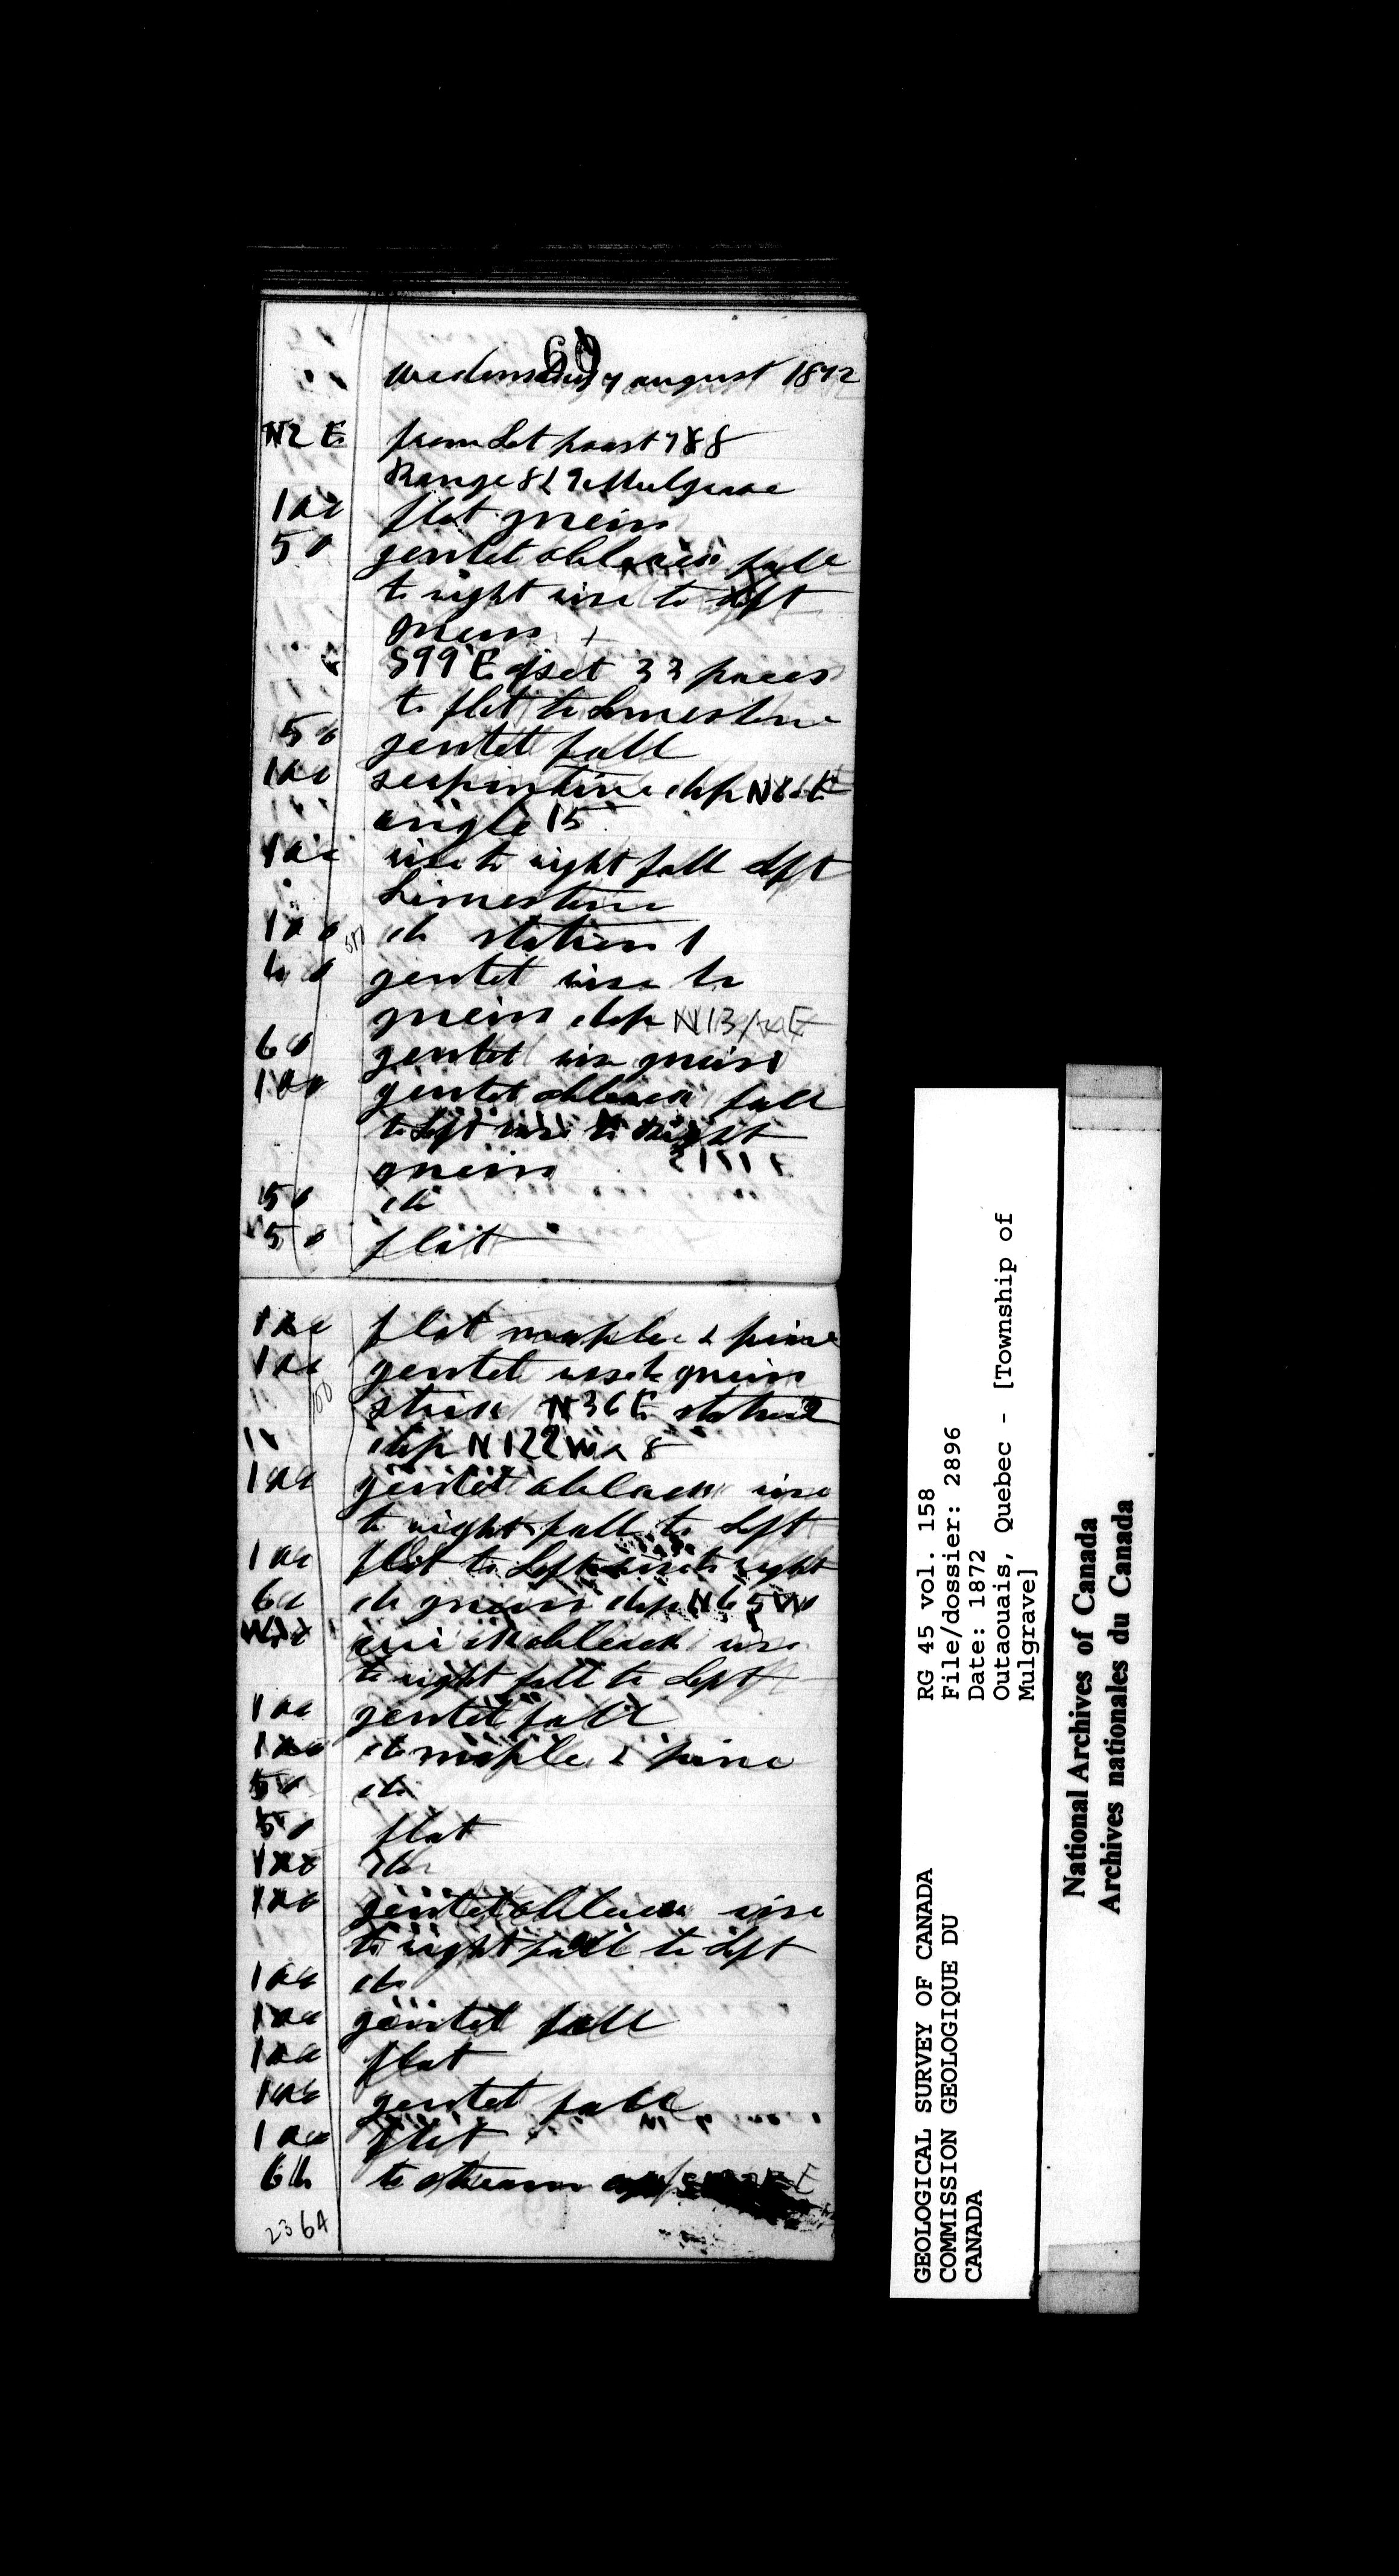 60
Wednesday 7 august 1872
N2E from Lot poast 7 & 8
Range 8 & 9 Mulgrave
100 flat gneiss
50 gentel fall
to right rise to left
gneiss +
S99E ofset 33 paces
to flat to Limestone
50 gentel fall
100 serpintine dip
angle 15
100 rise to right fall left
Limestone
100 do station 1
60 gentel rise to
gneiss dip
60 gentel rise gneiss
100 gentel fall
to Left rise to right
gneiss
50 do
50 flat
100 flat maple & pine
100 gentel rise to gneiss
N36E
dip N122W 8
100 gentel rise
to right fall to Left
100 flat to Left rise to right
60 do gneiss dip N65W
rise
to right fall to Left
100 gentel fall
100 do maple & pine
50 do
50 flat
100 do
100 gentel rise
to right fall to Left
100 do
100 gentel fall
100 flat
100 gentel fall
100 flat
to stream
2364
GEOLOGICAL SURVEY OF CANADA
COMMISSION GEOLOGIQUE DU
CANADA
RG 45 vol. 158
File/dossier: 2896
Date: 1872
Outaouais, Quebec - [Township of
Mulgrave]
National Archives of Canada
Archives nationales du Canada